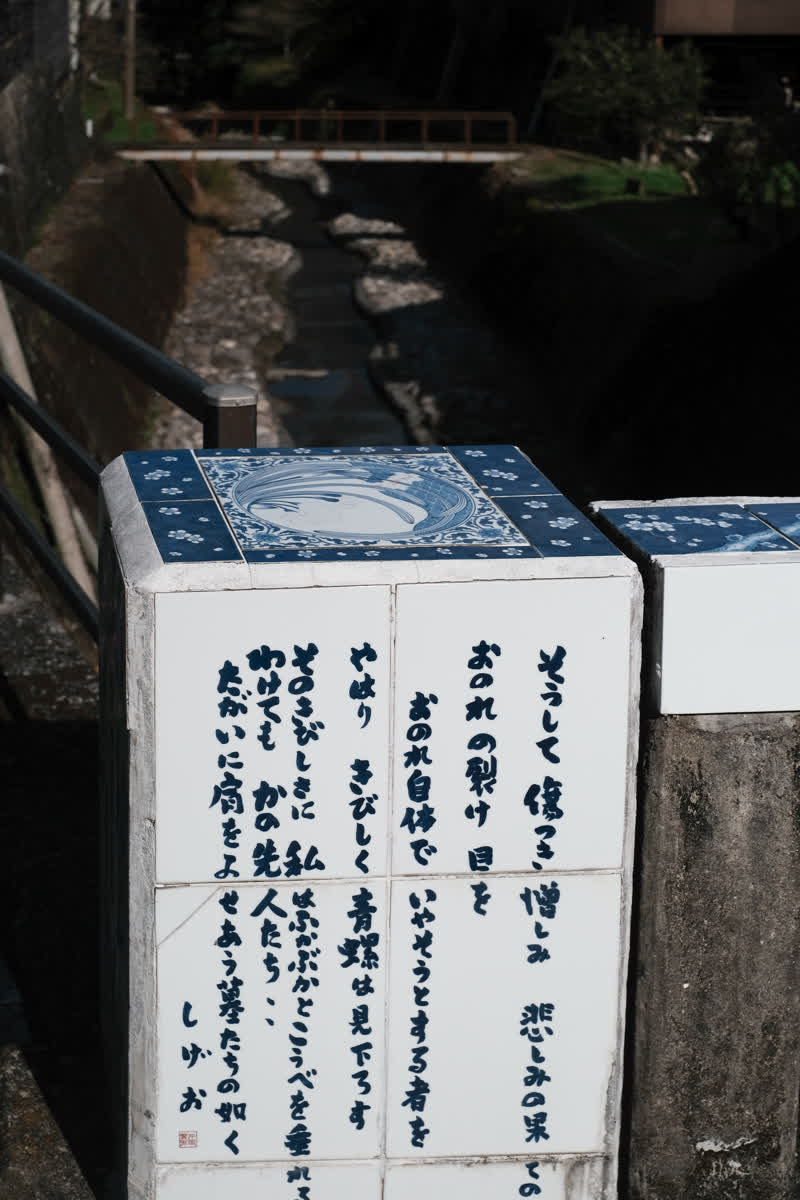 そうして 傷つき 憎しみ 悲しみの果ての
おのれの裂け目を
おのれ自体で いやそうとする者を
やはり きびしく 青螺は見下ろす
そのきびしさに 私はふかぶかとこうべを垂れる
わけても かの先人たち、、
たがいに肩をよせあう墓たちの如く
しげお